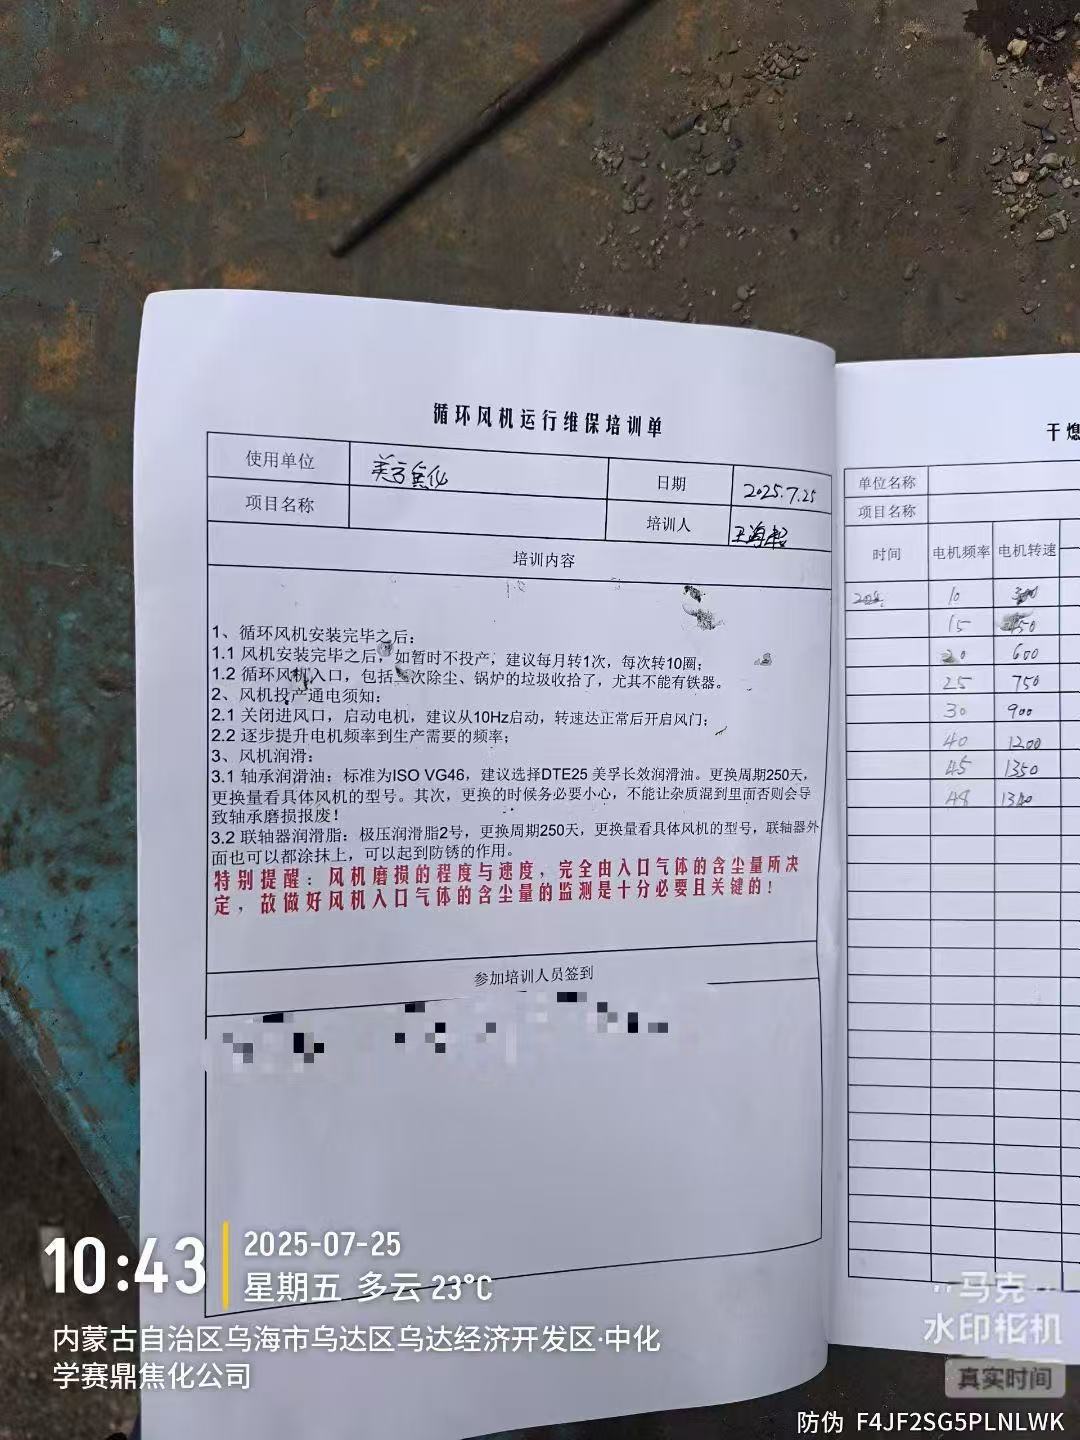 循环风机运行维保培训单
使用单位 美方焦化 日期 2025.7.25
项目名称 培训人
培训内容
1、循环风机安装完毕之后：
1.1 风机安装完毕之后，如暂时不投产，建议每月转1次，每次转10圈；
1.2 循环风机入口，包括二次除尘、锅炉的垃圾收拾了，尤其不能有铁器。
2、风机投产通电须知：
2.1 关闭进风口，启动电机，建议从10Hz启动，转速达正常后开启风门；
2.2 逐步提升电机频率到生产需要的频率；
3、风机润滑：
3.1 轴承润滑油：标准为ISO VG46，建议选择DTE25 美孚长效润滑油。更换周期250天，
更换量看具体风机的型号。其次，更换的时候务必要小心，不能让杂质混到里面否则会导
致轴承磨损报废！
3.2 联轴器润滑脂：极压润滑脂2号，更换周期250天，更换量看具体风机的型号，联轴器外
面也可以都涂抹上，可以起到防锈的作用。
特别提醒：风机磨损的程度与速度，完全由入口气体的含尘量所决
定，故做好风机入口气体的含尘量的监测是十分必要且关键的！
参加培训人员签到
干熄
单位名称
项目名称
时间 电机频率 电机转速
10 300
15 450
20 600
25 750
30 900
40 1200
45 1350
48
10:43
2025-07-25
星期五 多云 23℃
内蒙古自治区乌海市乌达区乌达经济开发区·中化
学赛鼎焦化公司
马克
水印相机
真实时间
防伪 F4JF2SG5PLNLWK